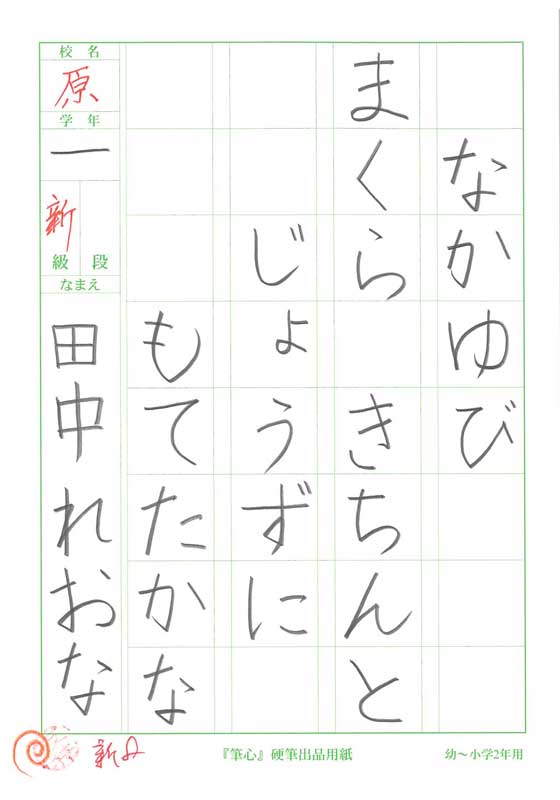 なかゆび
まくら きちんと
じょうずに
もてたかな
校名
原
学年
一
新
級 段
なまえ
田中れおな
『筆心』硬筆出品用紙
幼〜小学2年用